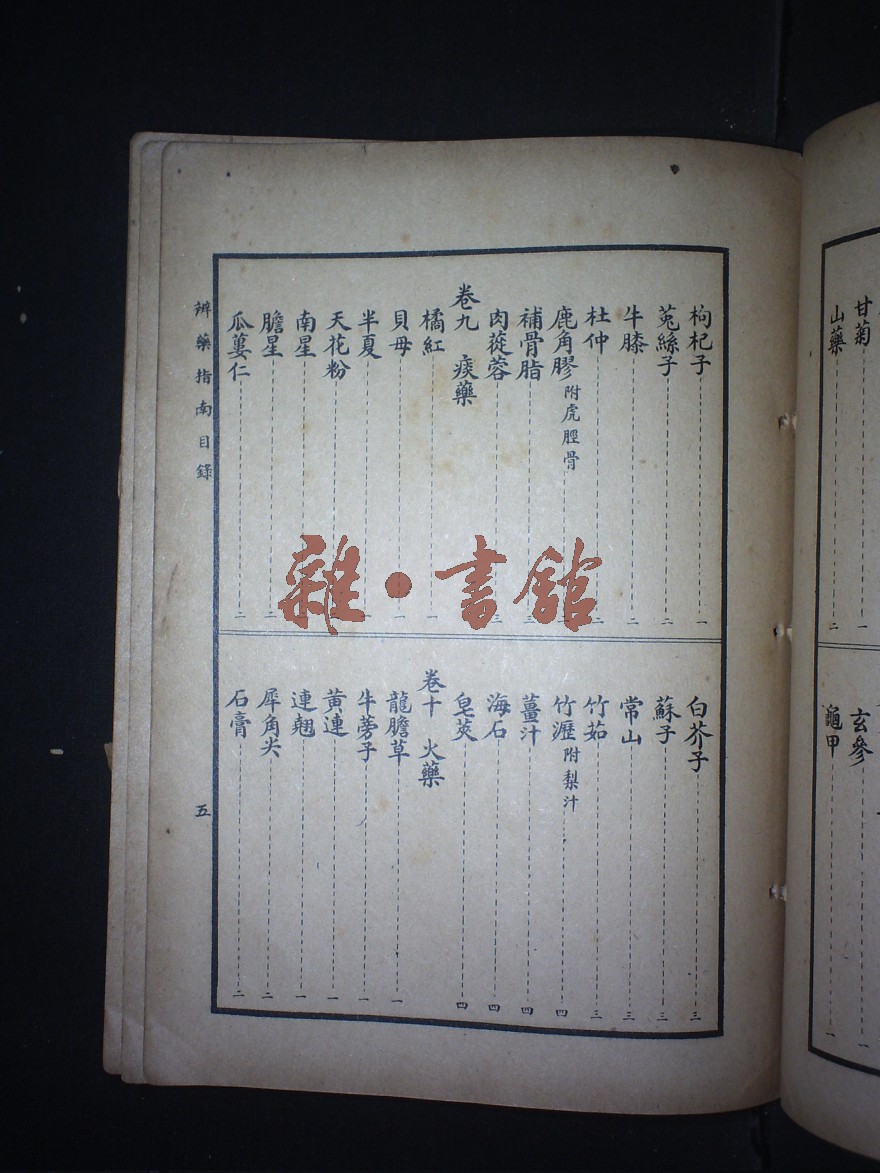 甘菊 一
山藥 二
玄參 一
龜甲 一
枸杞子 一
菟絲子 二
牛膝 二
杜仲 二
鹿角膠 附虎脛骨
補骨脂 三
肉蓯蓉 三
卷九 痰藥
橘紅 一
貝母 一
半夏
天花粉
南星
膽星 二
瓜蔞仁 二
白芥子 三
蘇子 三
常山 三
竹茹 三
竹瀝 附梨汁 四
薑汁 四
海石 四
皂莢 四
卷十 火藥
龍膽草 一
牛蒡子 一
黃連 一
連翹 一
犀角尖 二
石膏 二
辨藥指南目錄 五
雜·書館